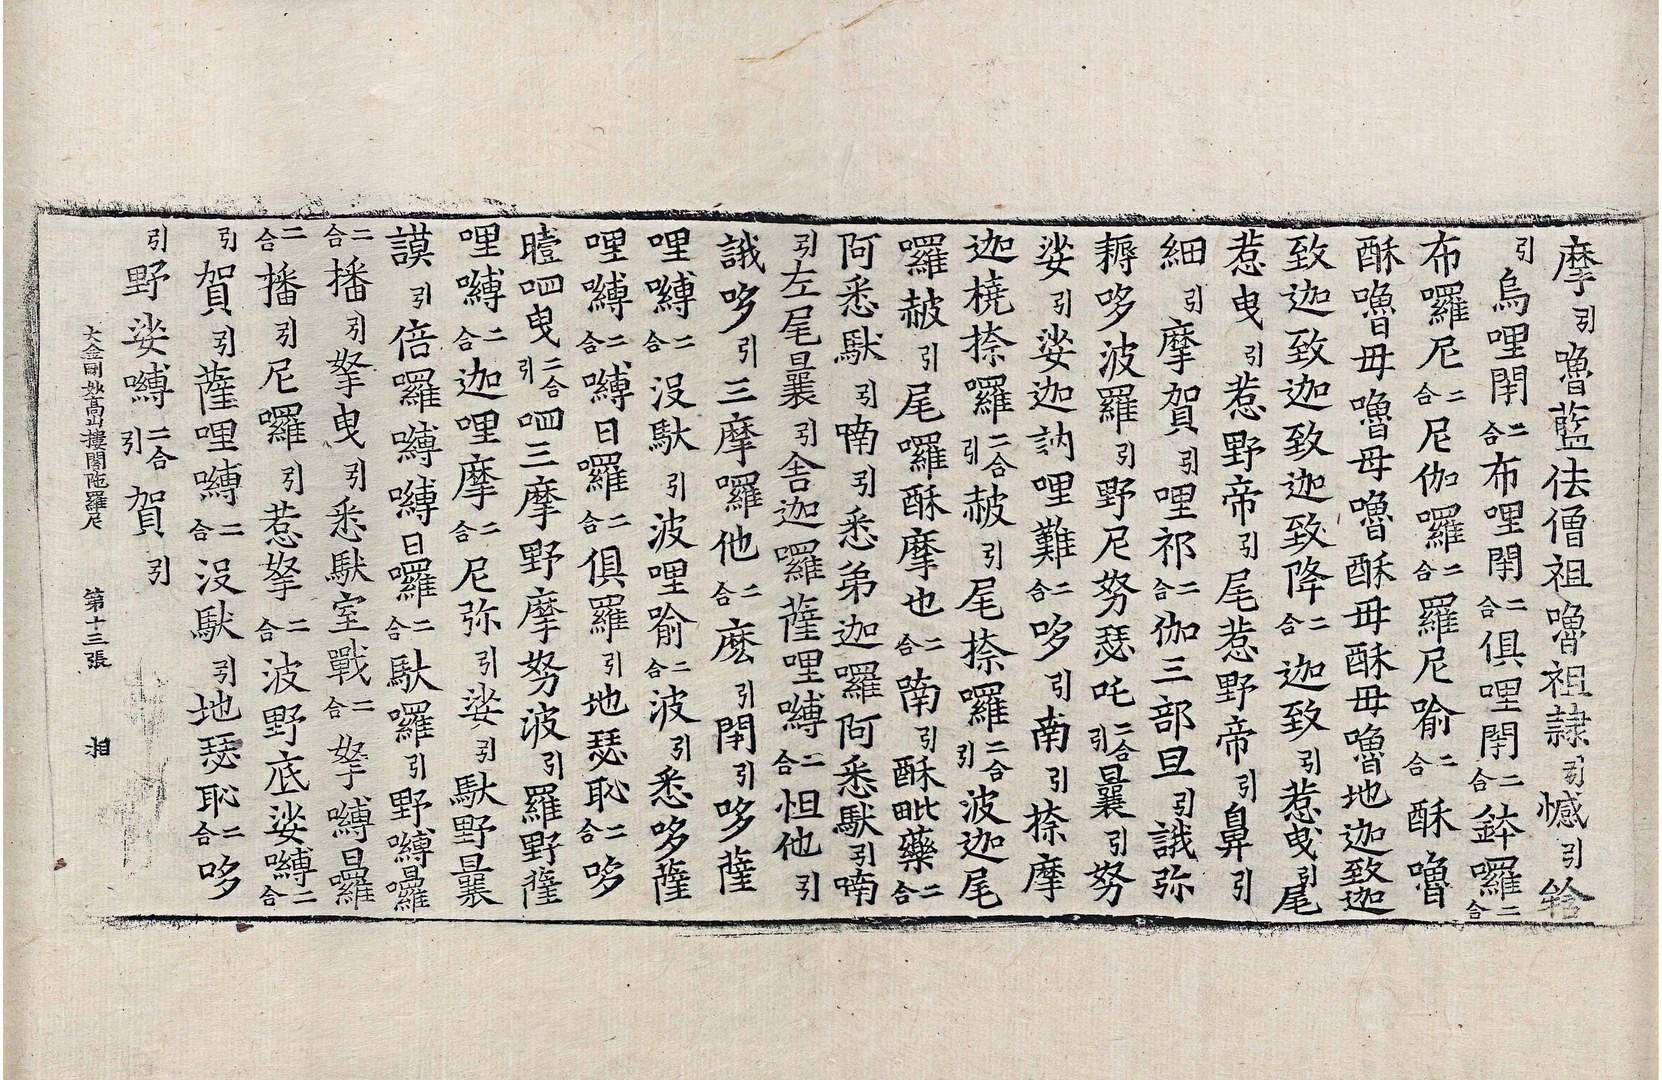 摩引嚕藍佉僧祖嚕祖隷引憾引
引烏哩閇二合布哩閇二合俱哩閇二合鉢囉二合
布囉尼二合尼伽囉二合羅尼喻二合酥嚕
酥嚕毋嚕毋嚕酥毋酥毋嚕地迦致迦
致迦致迦致迦致降二合迦致引惹曳引尾
惹曳引惹野帝引尾惹野帝引鼻引
細引摩賀引哩祁二合伽三部旦引誐弥
耨哆波羅引野尼努瑟吒二合引曩引努
娑引娑迦訥哩難二合哆引南引捺摩
迦橈捺囉二合引赦引尾捺囉二合引波迦尾
囉赦引尾囉酥摩也二合喃引酥毗藥二合
阿悉馱引喃引悉弟迦囉阿悉馱引喃
引左尾曩引舍迦囉薩哩嚩二合怛他引
誐哆引三摩囉他二合麽引閇引哆薩
哩嚩二合沒馱引波哩喻二合波引悉哆薩
哩嚩二合嚩日囉二合俱羅引地瑟恥二合哆
曀呬曳二合引呬三摩野摩努波引羅野薩
哩嚩二合迦哩摩二合尼弥引娑引馱野曩
謨引倍囉嚩嚩日囉二合馱羅引野嚩日囉
二合播引拏曳引悉馱室戰二合拏嚩日囉
二合播引尼囉引惹拏二合波野底娑嚩二合
引賀引薩哩嚩二合沒馱引地瑟恥二合哆
引野娑嚩二合引賀引
大金剛妙高山樓閣陁羅尼　第十三張　湘